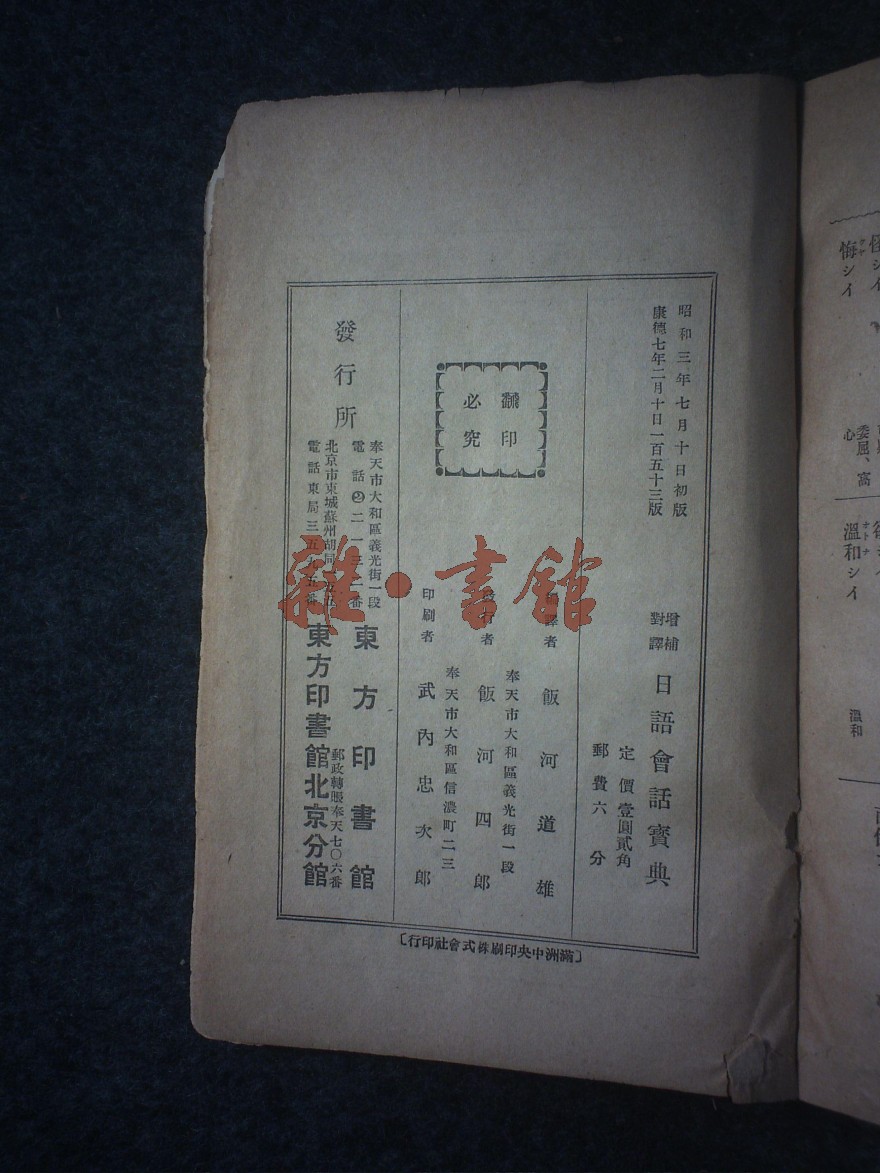 昭和三年七月十日初版
康德七年二月十日一百五十三版
增補
對譯
日語會話寶典
定價壹圓貳角
郵費六分
譯者 飯河道雄
奉天市大和區義光街一段
發行者 飯河四郎
奉天市大和區信濃町二三
印刷者 武內忠次郎
翻印
必究
發行所
奉天市大和區義光街一段
電話②二一三二番
東方印書館
郵政轉賬奉天七〇六番
北京市東城蘇州胡同
電話東局三五九五番
東方印書館北京分館
〔滿洲中央印刷株式會社印行〕
雜·書館
悔シイ
委屈、窩
心
溫和シイ
溫和